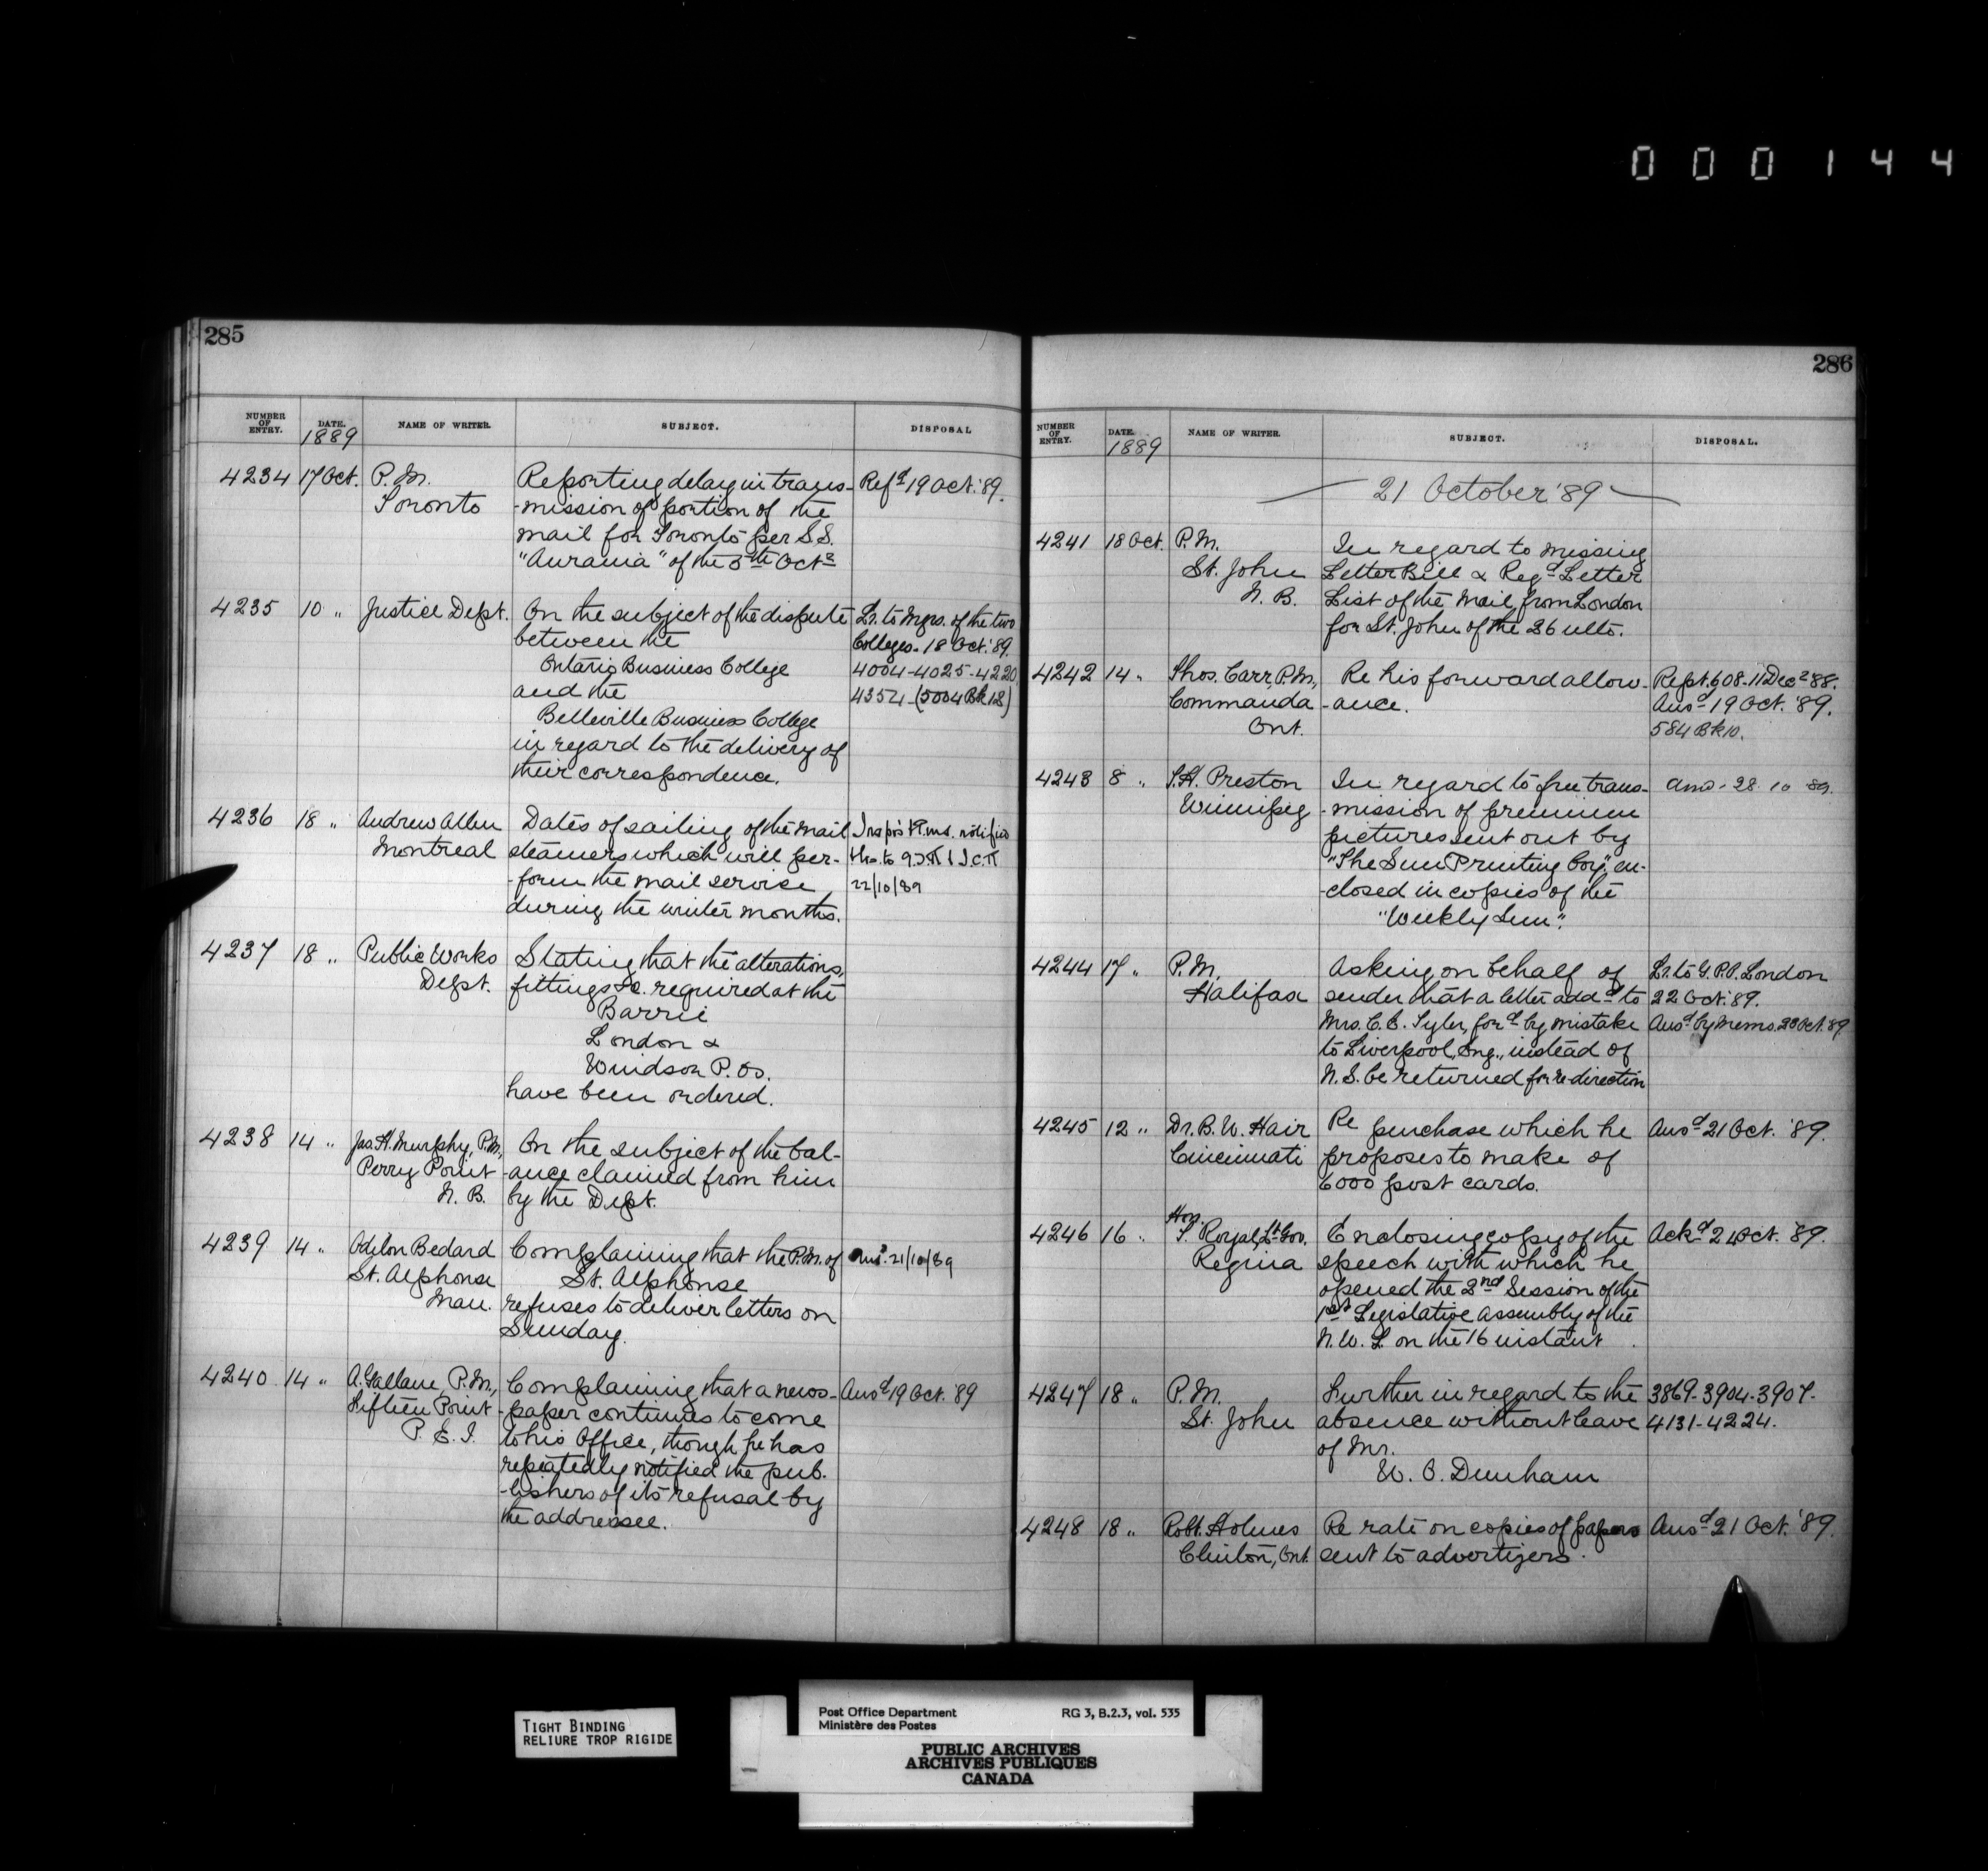 000144
285
NUMBER OF ENTRY. DATE. 1889 NAME OF WRITER. SUBJECT. DISPOSAL
4234 17 Oct. P.M. Reporting delay in trans- Refd 19 Oct. '89.
Toronto -mission of portion of the
mail for Toronto per S.S.
"Aurania" of the 5th Octr
4235 10 " Justice Dept. On the subject of the dispute Lr. to Mgrs. of the two
between the Colleges. 18 Oct. '89.
Ontario Business College 4004-4025-4220
and the 4354-(5004 Bk 18)
Belleville Business College
in regard to the delivery of
their correspondence.
4236 18 " Andrew Allan Dates of sailing of the mail notified
Montreal steamers which will per-
-form the mail service 22/10/89
during the winter months.
4237 18 " Public Works Stating that the alterations,
Dept. fittings &c. required at the
Barrie
London &
Windsor P. Os.
have been ordered.
4238 14 " Jas. H. Murphy, P.M., On the subject of the bal-
Perry Point -ance claimed from him
N.B. by the Dept.
4239 14 " Odilon Bedard Complaining that the P.M. of Ansd. 21/10/89
St. Alphonse St. Alphonse
Man. refuses to deliver letters on
Sunday.
4240 14 " A. Gallant, P.M., Complaining that a news- Ansd 19 Oct. '89
Fifteen Point -paper continues to come
P.E.I. to his Office, though he has
repeatedly notified the pub-
-lishers of its refusal by
the addressee.
286
NUMBER OF ENTRY. DATE. 1889 NAME OF WRITER. SUBJECT. DISPOSAL.
21 October '89
4241 18 Oct. P.M. In regard to missing
St. John Letter Bill & Regd Letter
N.B. List of the Mail from London
for St. John of the 26 ulto.
4242 14 " Thos. Carr, P.M., Re his forward allow- Rept. 608-11 Decr '88.
Commanda -ance. Ansd 19 Oct. '89.
Ont. 584 Bk 10.
4243 8 " S.H. Preston In regard to free trans- Ansd. 28 10 89.
Winnipeg -mission of premium
pictures sent out by
"The Sun Printing Coy." en-
-closed in copies of the
"Weekly Sun".
4244 17 " P.M. Asking on behalf of Lr. to G.P.O. London
Halifax sender that a letter addd to 22 Oct. '89.
Mrs. C.E. Tyler, ford by mistake Ansd by Memo. 23 Oct. '89
to Liverpool, Eng., instead of
N.S. be returned for re-direction
4245 12 " Dr. B.W. Hair Re purchase which he Ansd 21 Oct. '89.
Cincinnati proposes to make of
6000 post cards.
Hon.
4246 16 " J. Royal, Lt-Gov. Enclosing copy of the Ackd 21 Oct. '89.
Regina speech with which he
opened the 2nd Session of the
1st Legislative Assembly of the
N.W.T. on the 16 instant
4247 18 " P.M. Further in regard to the 3869-3904-3907-
St. John absence without leave 4131-4224.
of Mr.
W. O. Dunham
4248 18 " Robt. Holmes Re rate on copies of papers Ansd 21 Oct. '89.
Clinton, Ont. sent to advertizers.
TIGHT BINDING
RELIURE TROP RIGIDE
Post Office Department RG 3, B.2.3, vol. 535
Ministère des Postes
PUBLIC ARCHIVES
ARCHIVES PUBLIQUES
CANADA